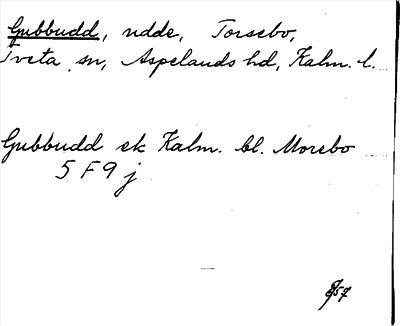 Gubbudd, udde, Torsebo,
Tveta sn, Aspelands hd, Kalm. l.
Gubbudd ek Kalm. bl. Morebo
5 F 9 j